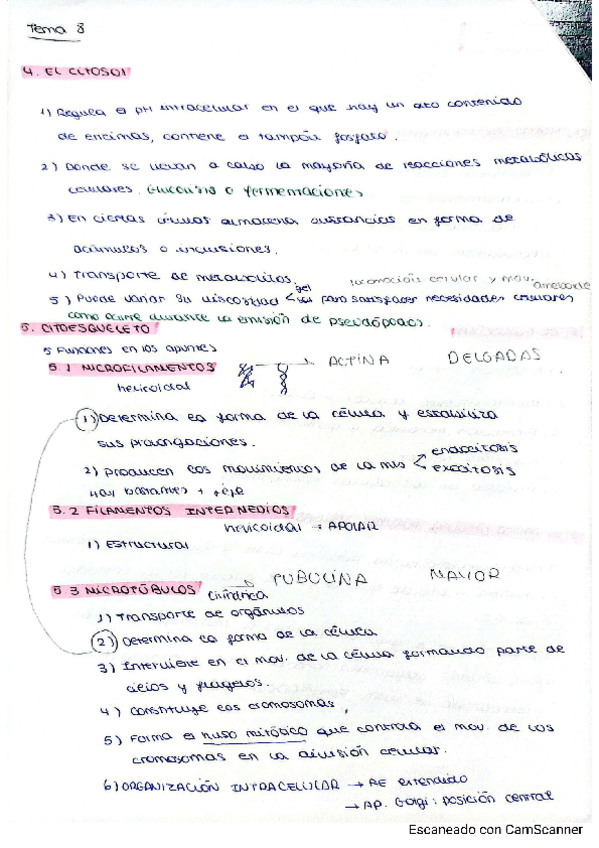 Tema 8
4. EL CITOSOL
1) Regula el pH intracelular en el que hay un alto contenido
de encimas, contiene el tampón fosfato.
2) Donde se llevan a cabo la mayoría de reacciones metabólicas
celulares. Glucolisis o fermentaciones
3) En ciertas células almacena sustancias en forma de
acúmulos o inclusiones.
4) Transporte de metabolitos. locomoción celular y mov. ameboide
5) Puede variar su viscosidad < gel sol para satisfacer necesidades celulares
como ocurre durante la emisión de pseudópodos.
5. CITOESQUELETO
5 Funciones en los apuntes
5.1 MICROFILAMENTOS → ACTINA DELGADAS
helicoidal
1) Determina la forma de la célula y estabiliza
sus prolongaciones.
2) Producen los movimientos de la < endocitosis
exocitosis
5.2 FILAMENTOS INTERMEDIOS
helicoidal → APOLAR
1) Estructural
5.3 MICROTÚBULOS → TUBULINA MAYOR
cilíndrica
1) Transporte de orgánulos
2) Determina la forma de la célula
3) Interviene en el mov. de la célula formando parte de
cilios y flagelos.
4) Constituye los cromosomas
5) Forma el huso mitótico que controla el mov. de los
cromosomas en la división celular.
6) ORGANIZACIÓN INTRACELULAR → RE extendido
→ AP. Golgi: posición central
Escaneado con CamScanner